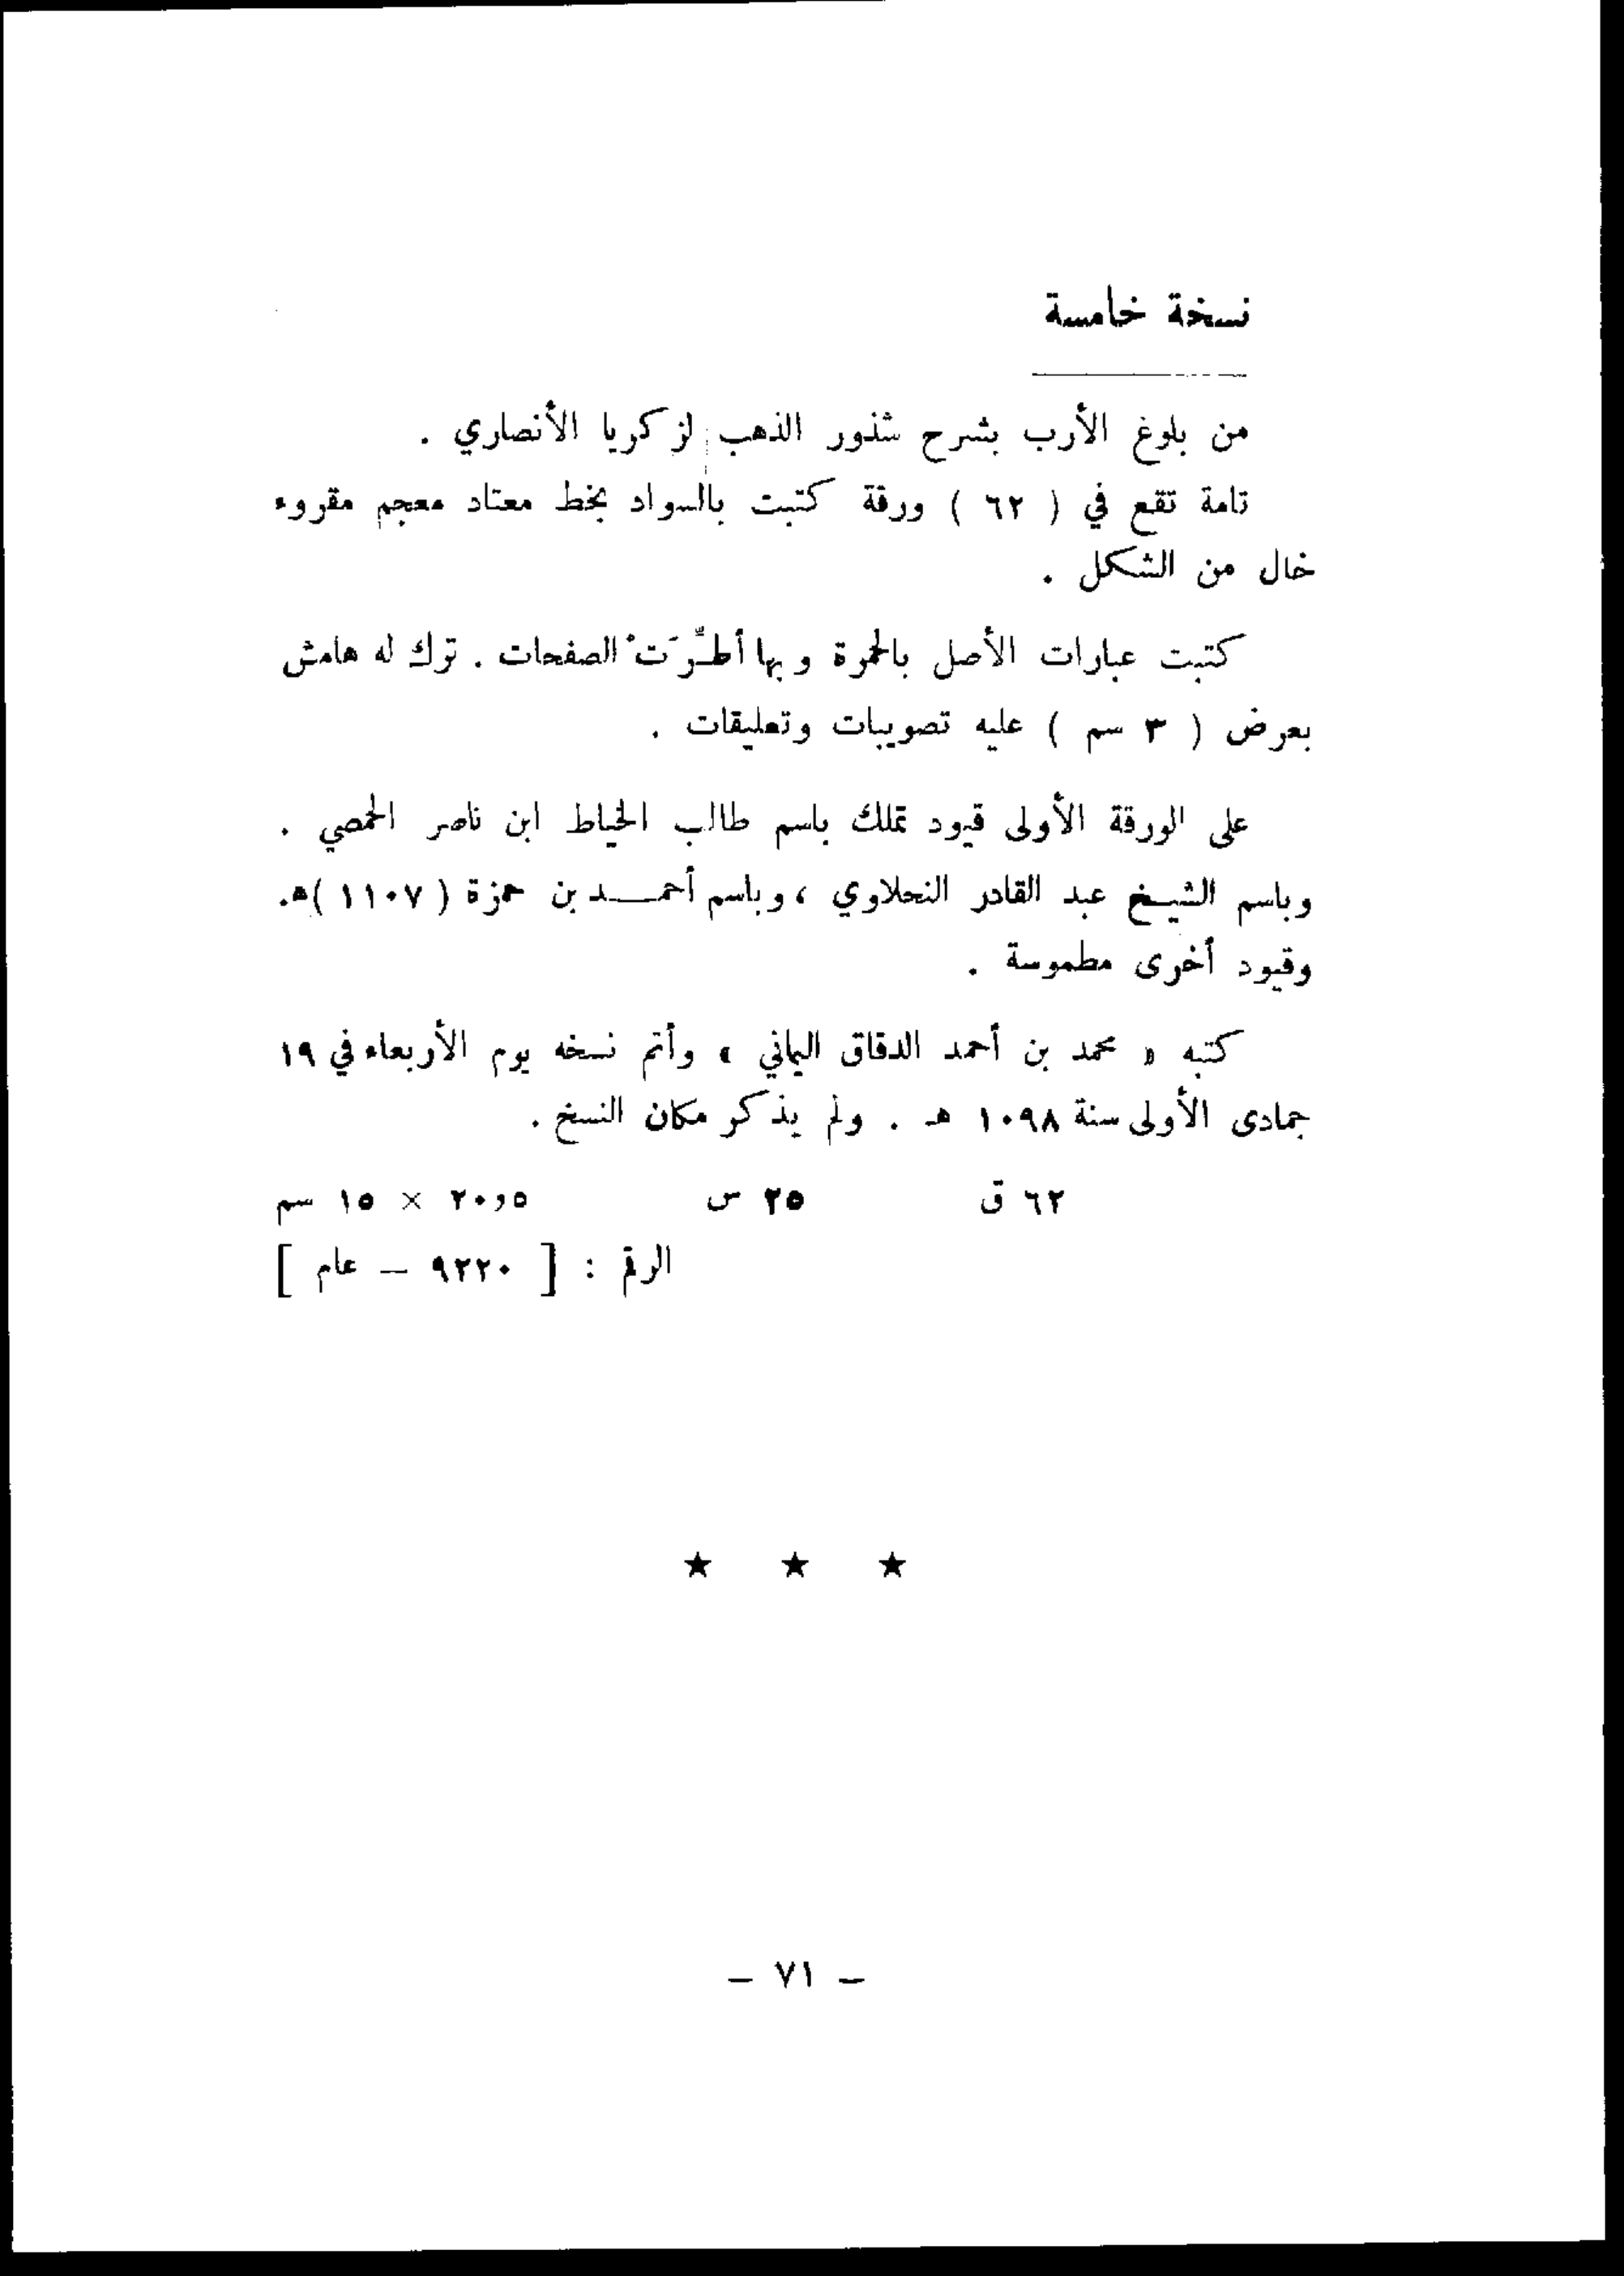 نسخة خامسة
من بلوغ الأرب بشرح شذور الذهب لزكريا الأنصاري .
تامة تقع في ( ٦٢ ) ورقة كتبت بالسواد بخط معتاد معجم مقروء
خال من الشكل .
كتبت عبارات الأصل بالحمرة وبها أطِّرَتْ الصفحات . ترك له هامش
بعرض ( ٣ سم ) عليه تصويبات وتعليقات .
على الورقة الأولى قيود تملك باسم طالب الخياط ابن ناصر الحمصي .
وباسم الشيخ عبد القادر النحلاوي ، وباسم أحمد بن حمزة ( ١١٠٧ )ه.
وقيود أخرى مطموسة .
كتبه « محمد بن أحمد الدقاق اليماني » وأتم نسخه يوم الأربعاء في ١٩
جمادى الأولى سنة ١٠٩٨ هـ . ولم يذكر مكان النسخ .
٦٢ ق ٢٥ س ٢٠,٥ × ١٥ سم
الرقم : [ ٩٢٢٠ – عام ]
★ ★ ★
– ٧١ –